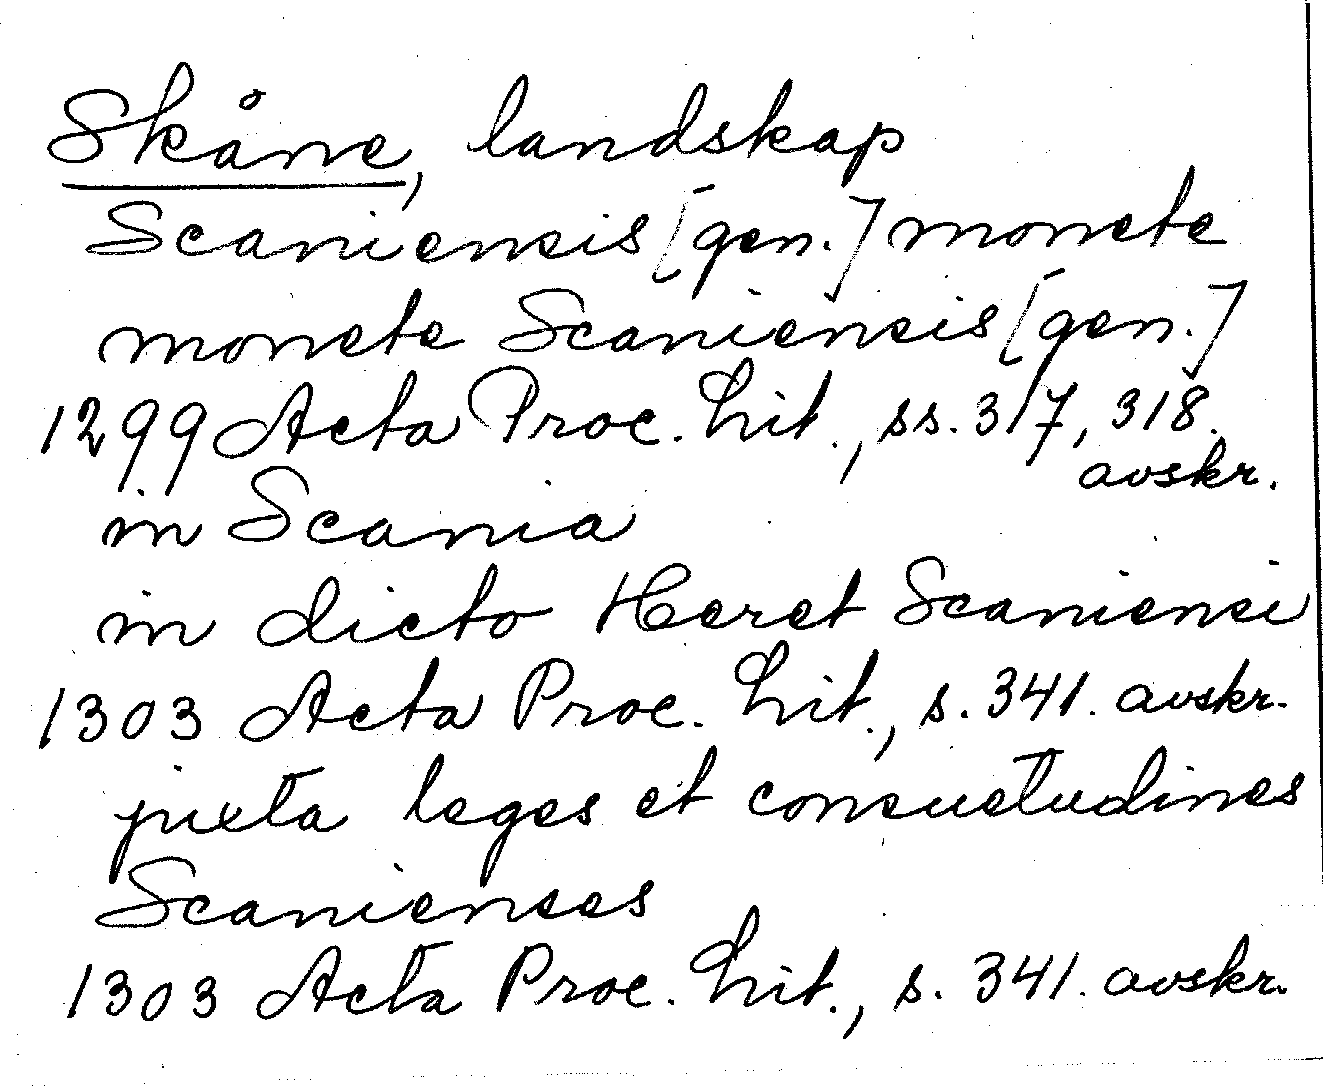 Skåne, landskap
Scaniensis [gen.] monete
monete Scaniensis [gen.]
1299 Acta Proc. Lit., ss. 317, 318.
avskr.
in Scania
in dicto Heret Scaniensi
1303 Acta Proc. Lit., s. 341. avskr.
juxta leges et consuetudines
Scanienses
1303 Acta Proc. Lit., s. 341. avskr.